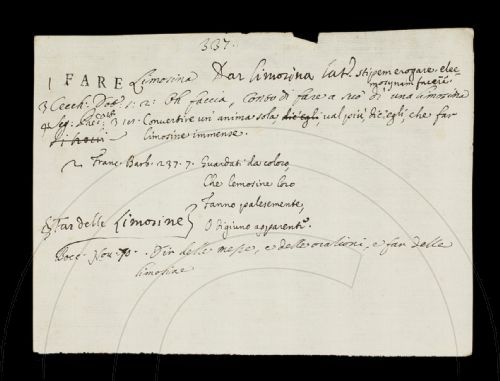 337.
1 FARE Limosina Dar limosina lat. stipem erogare. elemosynam facere.
3 Cecch. Dot. 1. 2. Oh faccia, Conto di fare a suo di una limosina
4 3. 10. Convertire un' anima sola, dic'egli, val più, dic'egli, che far
limosine immense.
2 Franc. Barb. 237. 7. Guardati da coloro,
Che lemosine loro
Fanno palesemente,
O digiuno apparente.
§ Far delle Limosine
Bocc. Nov. Dir delle messe, e delle orazioni, e far delle
limosine